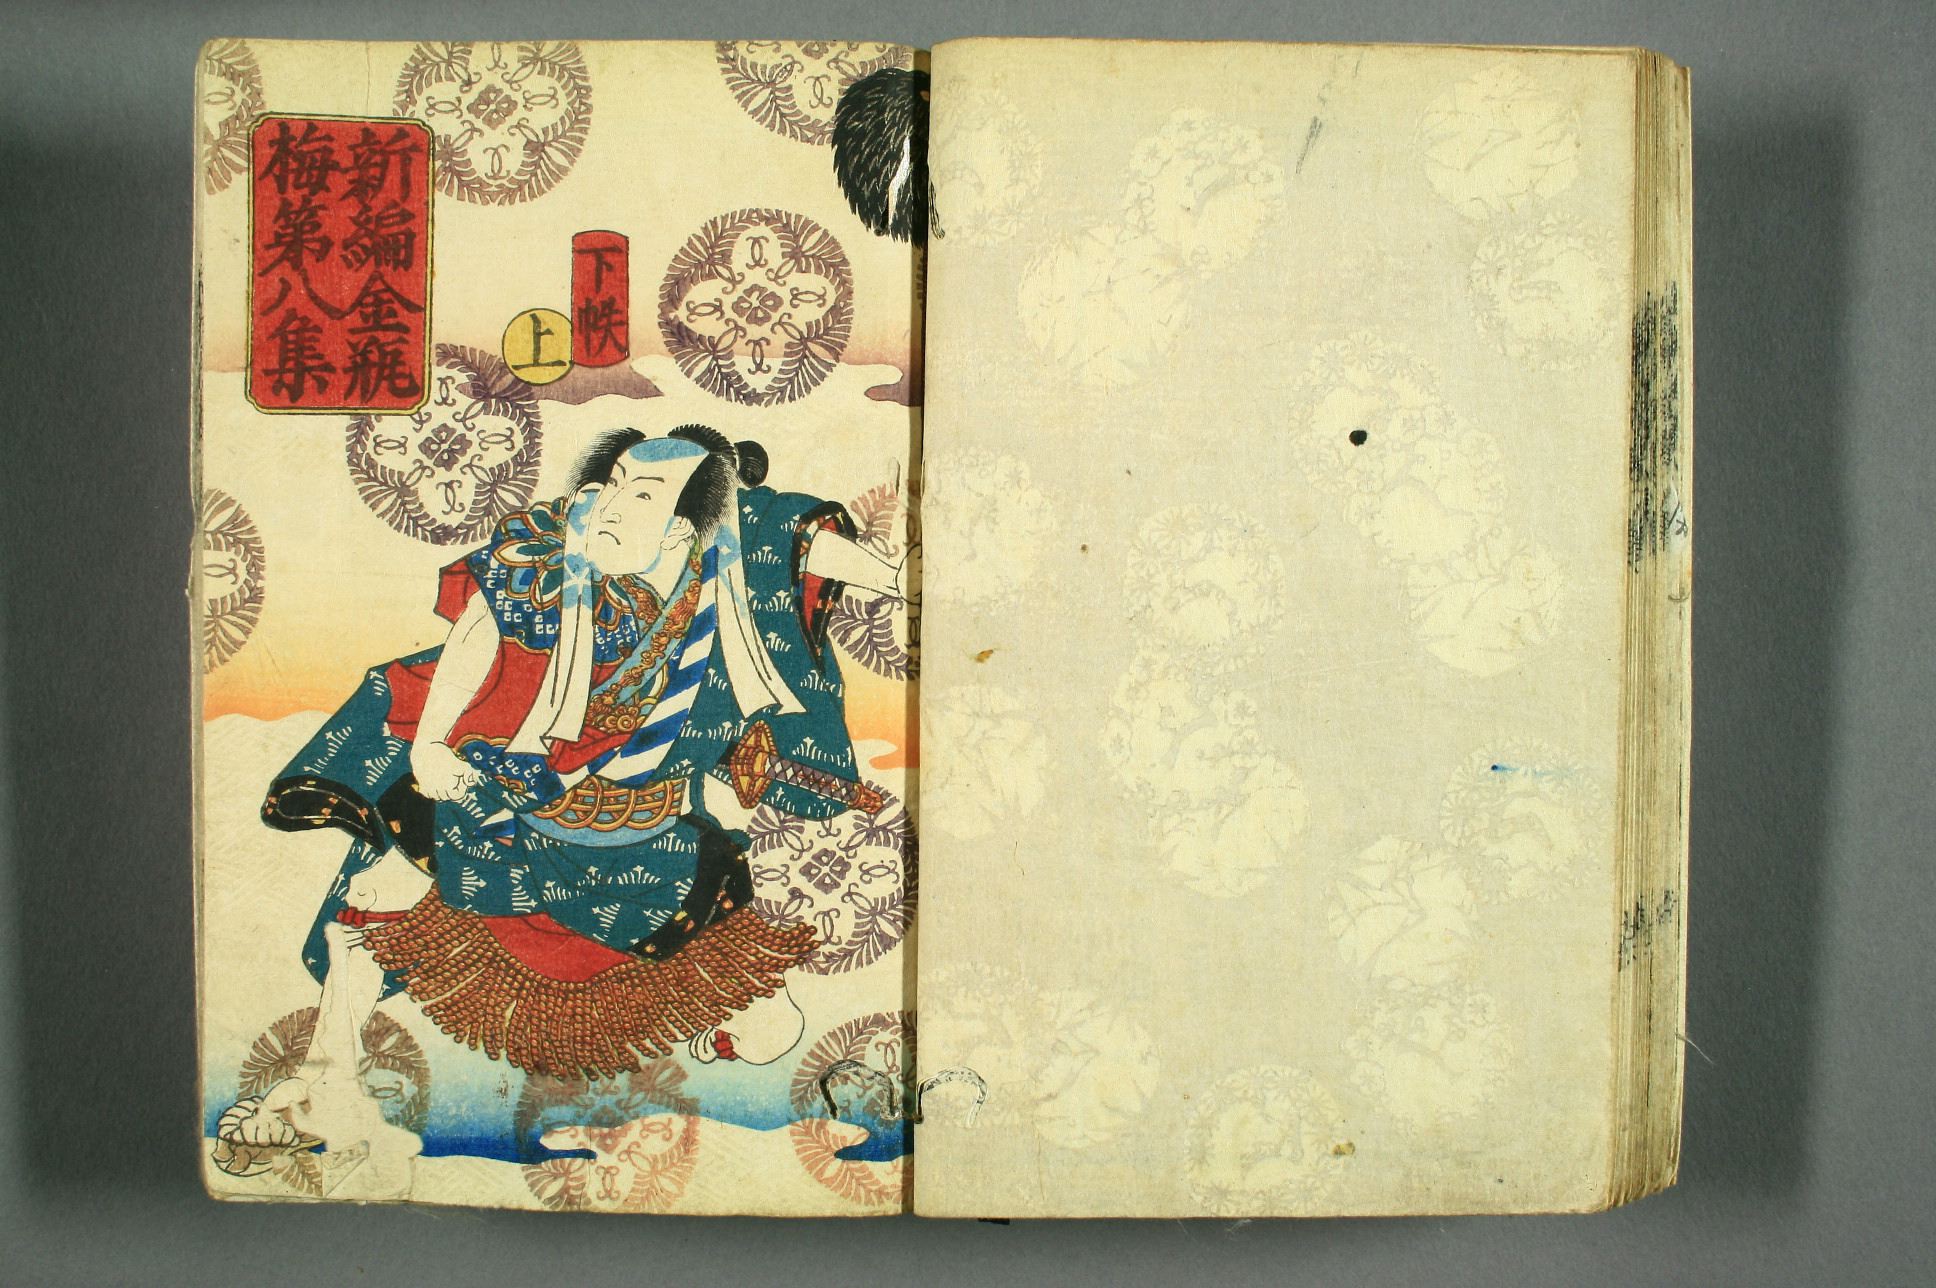 新編金瓶
梅第八集
下帙
上